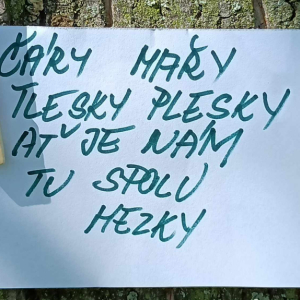 ČÁRY MAŘY
TLESKY PLESKY
AŤ JE NÁM
TU SPOLU
HEZKY